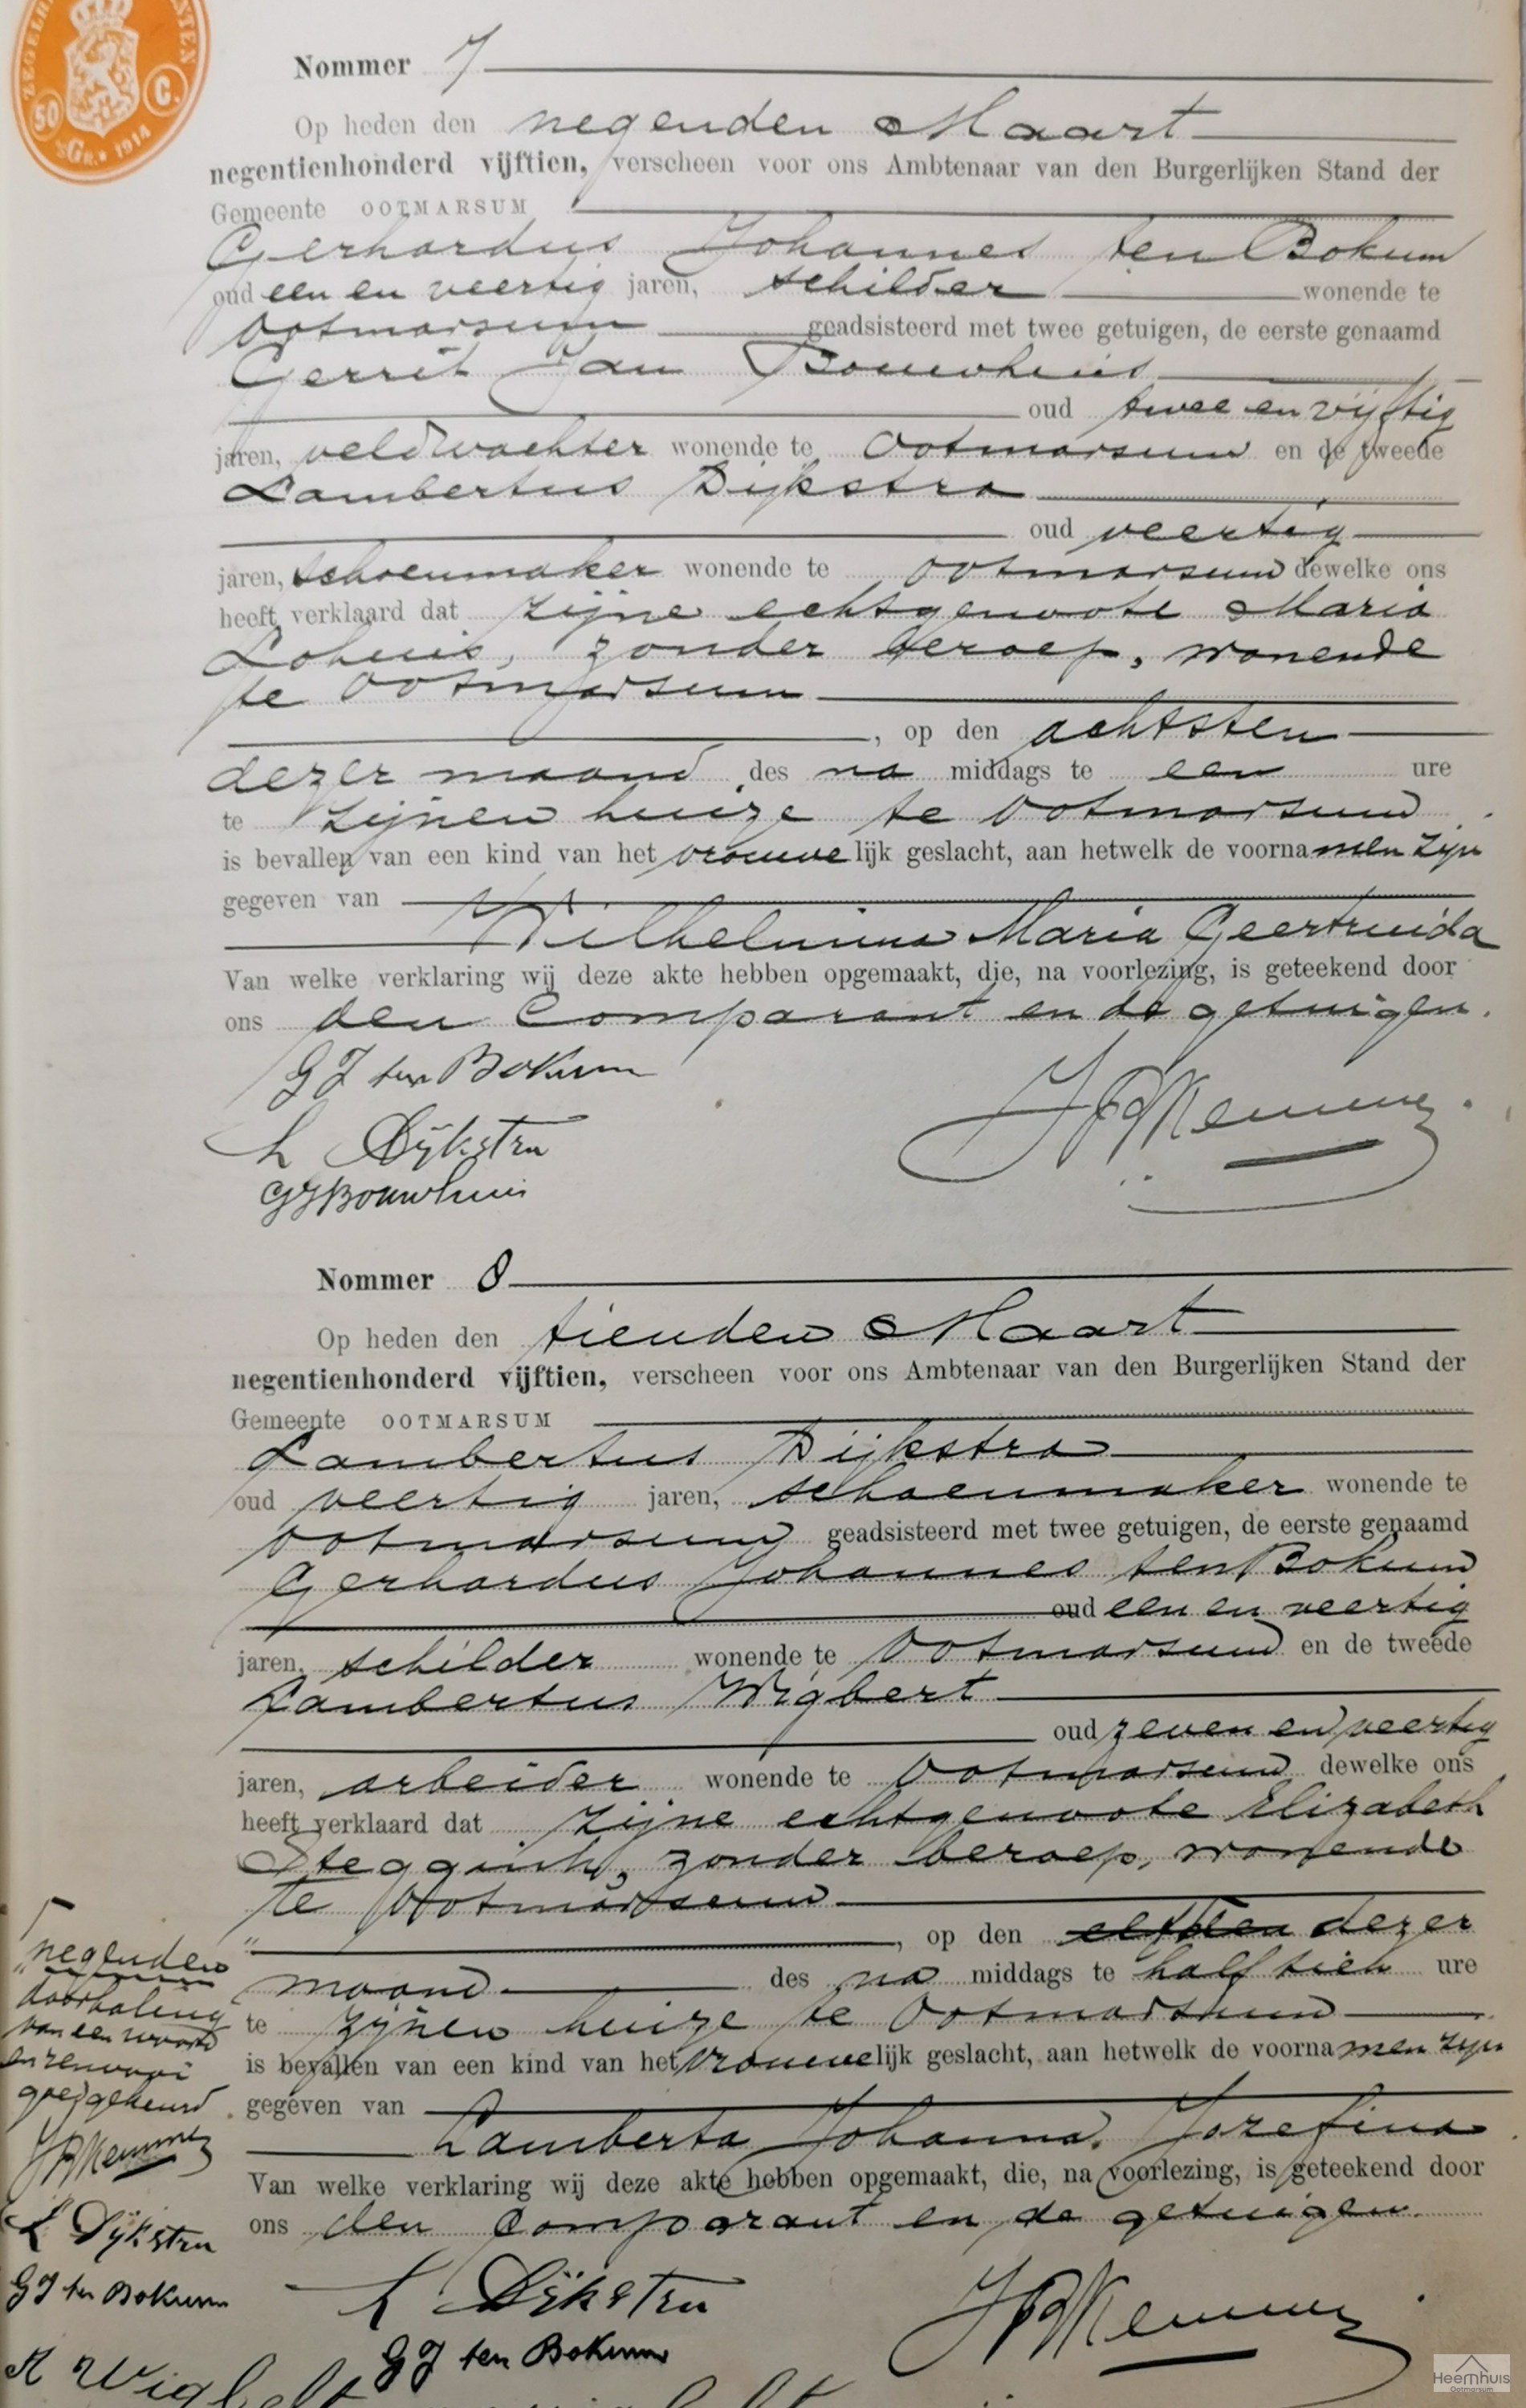 50 C.
GR. 1914
Nommer 7
Op heden den negenden Maart
negentienhonderd vijftien, verscheen voor ons Ambtenaar van den Burgerlijken Stand der
Gemeente OOTMARSUM
Gerhardus Johannes ten Bokum
oud een en veertig jaren, schilder wonende te
Ootmarsum geadsisteerd met twee getuigen, de eerste genaamd
Gerrit Jan Bouwhuis
oud twee en vijftig
jaren, veldwachter wonende te Ootmarsum en de tweede
Lambertus Dijkstra
oud veertig
jaren, schoenmaker wonende te Ootmarsum dewelke ons
heeft verklaard dat zijne echtgenoote Maria
Lohuis, zonder beroep, wonende
te Ootmarsum
, op den achtsten
dezer maand des na middags te een ure
te zijnen huize te Ootmarsum
is bevallen van een kind van het vrouwelijk geslacht, aan hetwelk de voornamen zijn
gegeven van
Wilhelmina Maria Geertruida
Van welke verklaring wij deze akte hebben opgemaakt, die, na voorlezing, is geteekend door
ons den Comparant en de getuigen.
G J ten Bokum
L Dijkstra
GJBouwhuis
Nommer 8
Op heden den tienden Maart
negentienhonderd vijftien, verscheen voor ons Ambtenaar van den Burgerlijken Stand der
Gemeente OOTMARSUM
Lambertus Dijkstra
oud veertig jaren, schoenmaker wonende te
Ootmarsum geadsisteerd met twee getuigen, de eerste genaamd
Gerhardus Johannes ten Bokum
oud een en veertig
jaren, schilder wonende te Ootmarsum en de tweede
Lambertus Wigbert
oud zeven en veertig
jaren, arbeider wonende te Ootmarsum dewelke ons
heeft verklaard dat zijne echtgenoote Elizabeth
Steggink, zonder beroep, wonende
te Ootmarsum
, op den elfden dezer
maand des na middags te half tien ure
te zijnen huize te Ootmarsum
is bevallen van een kind van het vrouwelijk geslacht, aan hetwelk de voornamen zijn
gegeven van
Lamberta Johanna Jozefina
Van welke verklaring wij deze akte hebben opgemaakt, die, na voorlezing, is geteekend door
ons den Comparant en de getuigen.
L Dijkstra
G J ten Bokum
negenden
doorhaling
van een woord
en renvooi
goedgekeurd
L Dijkstra
G J ten Bokum
Heemhuis
Ootmarsum